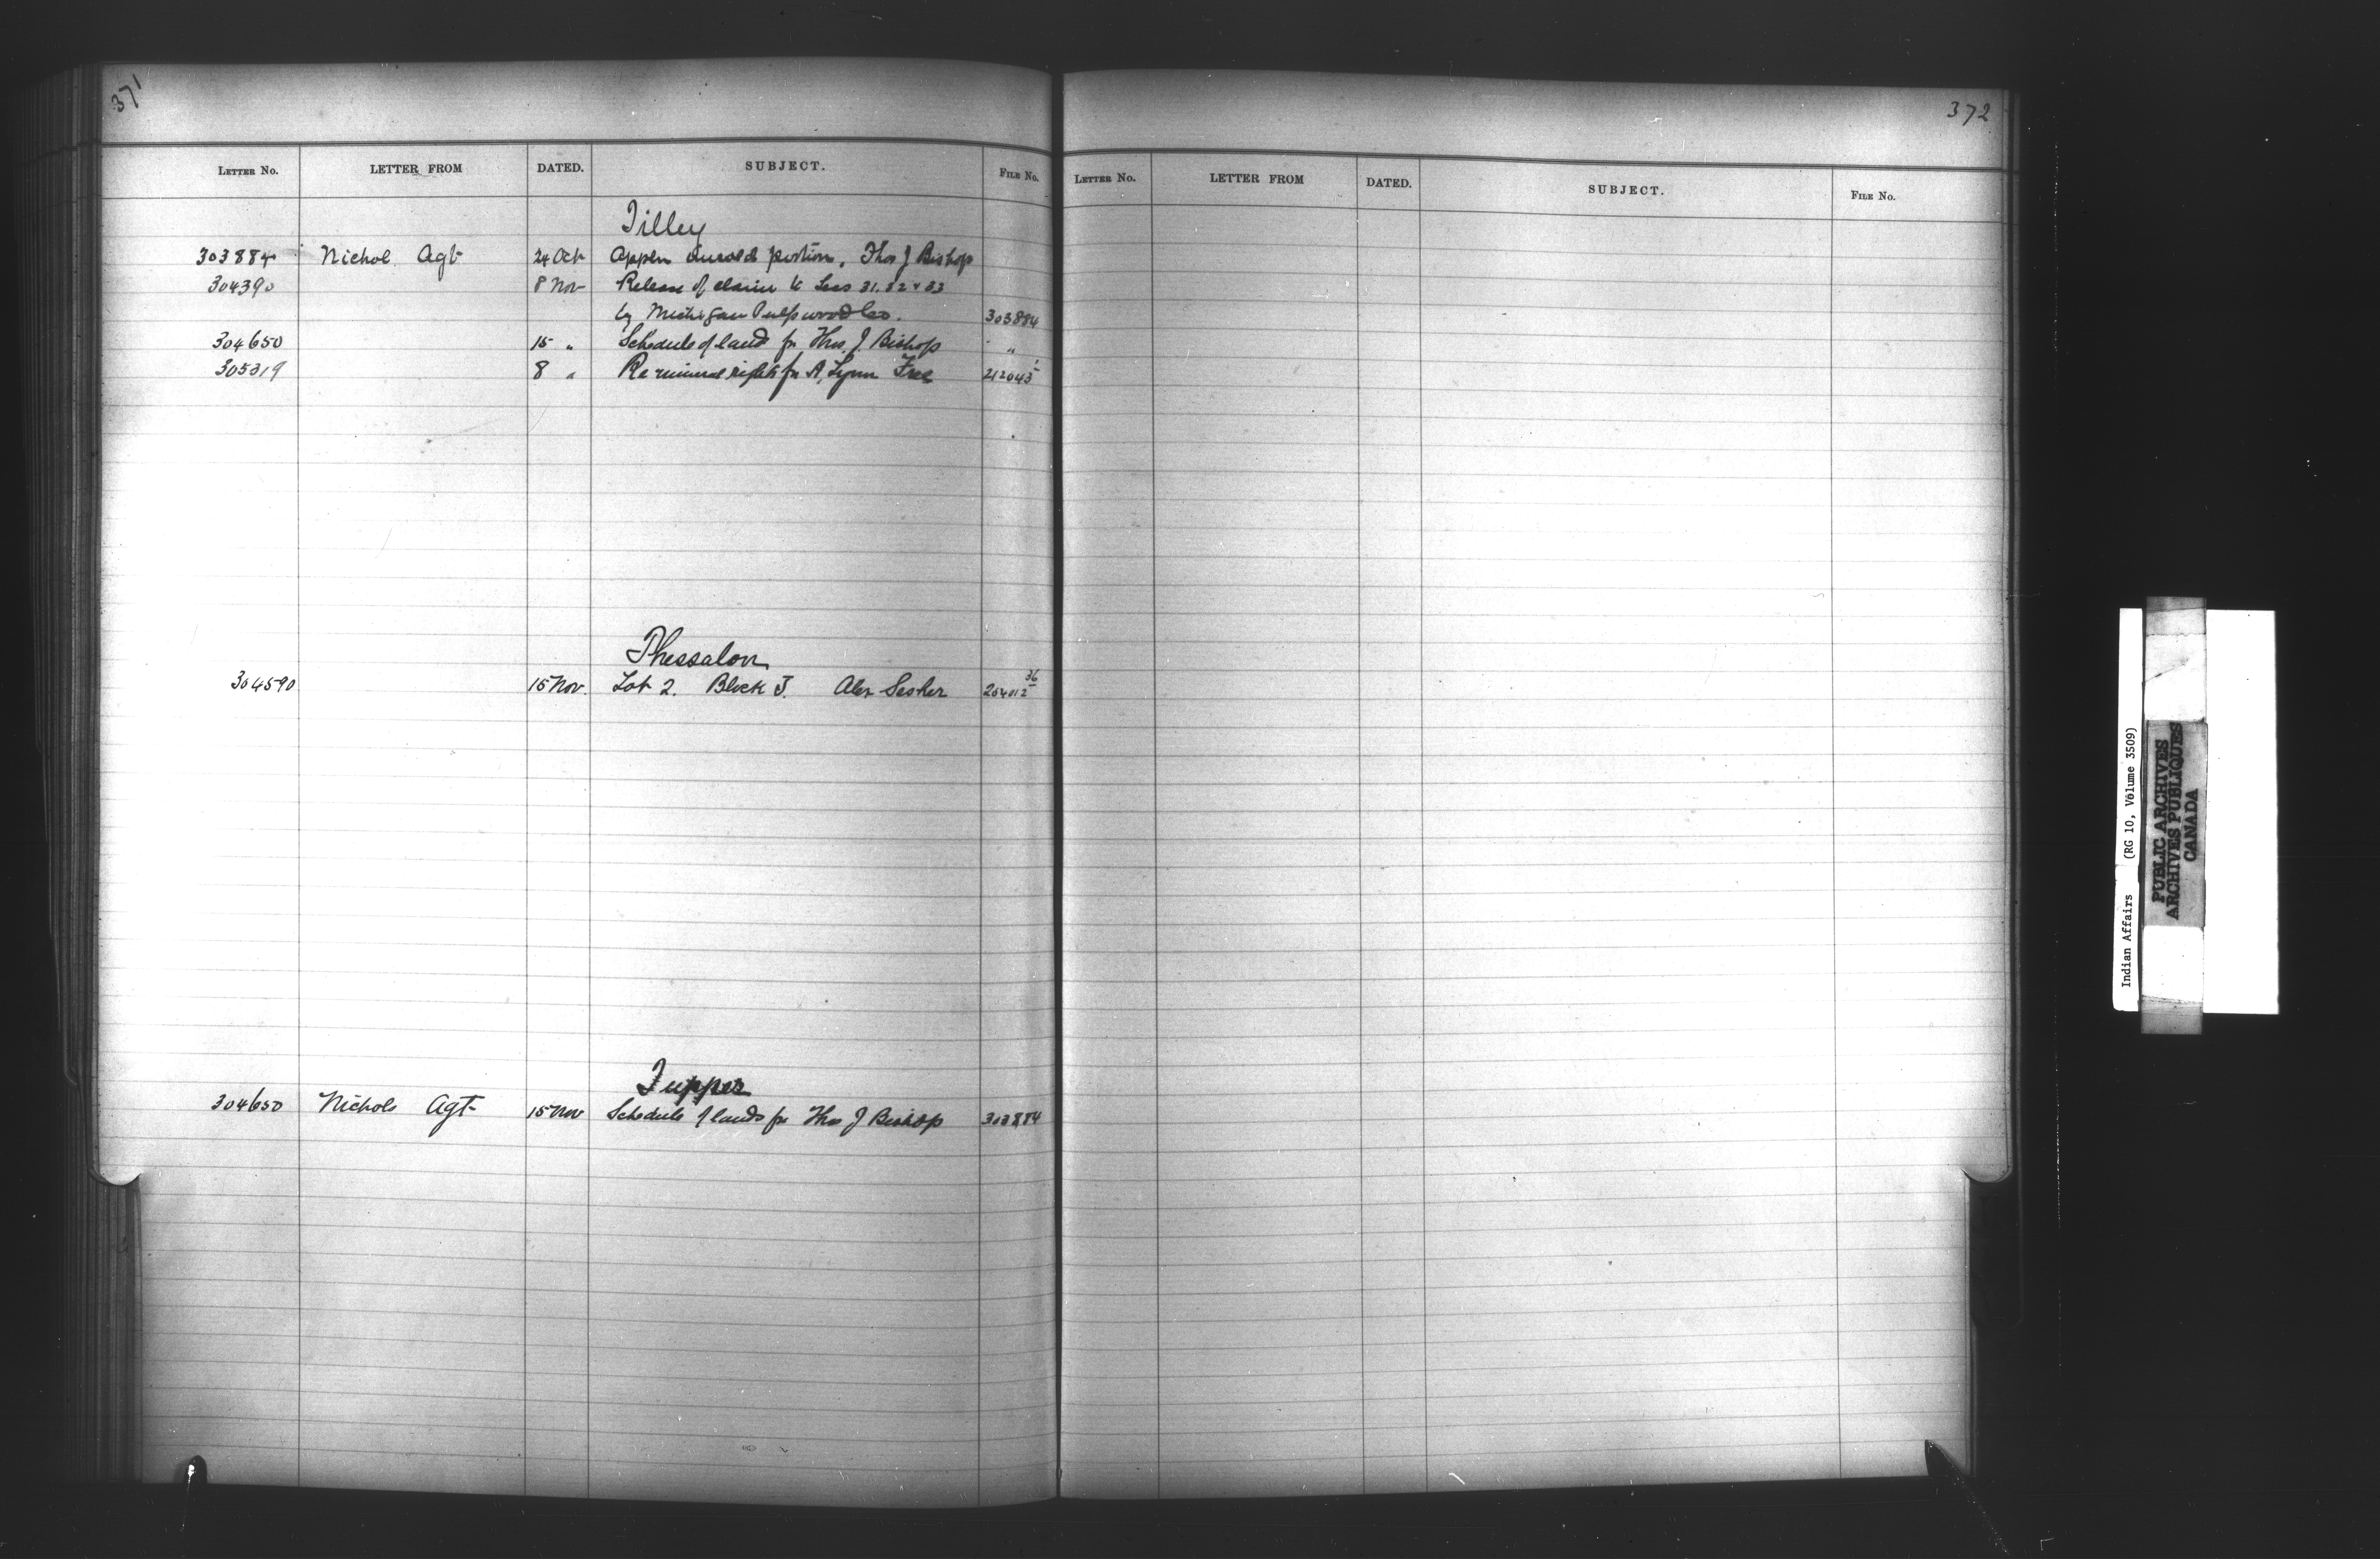 371
LETTER No. LETTER FROM DATED. SUBJECT. FILE No.
Tilley
303884 Nichol Agt 24 Oct Appln unsold portion, Thos J Bishop
304390 8 Nov Release of claim to Secs 31. 32 & 33
by Michigan Pulpwood Co. 303884
304650 15 " Schedule of land for Thos. J. Bishop "
305319 8 " Re mineral rights for A. Lynn Free 212043
Thessalon
304590 15 Nov. Lot 2. Block J. Alex 204012 36
Tupper
304650 Nichols Agt 15 Nov Schedule of lands for Thos J Bishop 303884
372
LETTER No. LETTER FROM DATED. SUBJECT. FILE No.
Indian Affairs (RG 10, Volume 3509)
PUBLIC ARCHIVES
ARCHIVES PUBLIQUES
CANADA